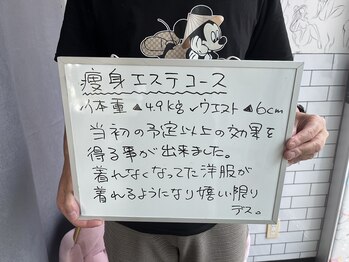 痩身エステコース
体重▲4.9kg✓ウエスト▲6cm
当初の予定以上の効果を
得る事が出来ました。
着れなくなってた洋服が
着れるようになり嬉しい限り
デス。